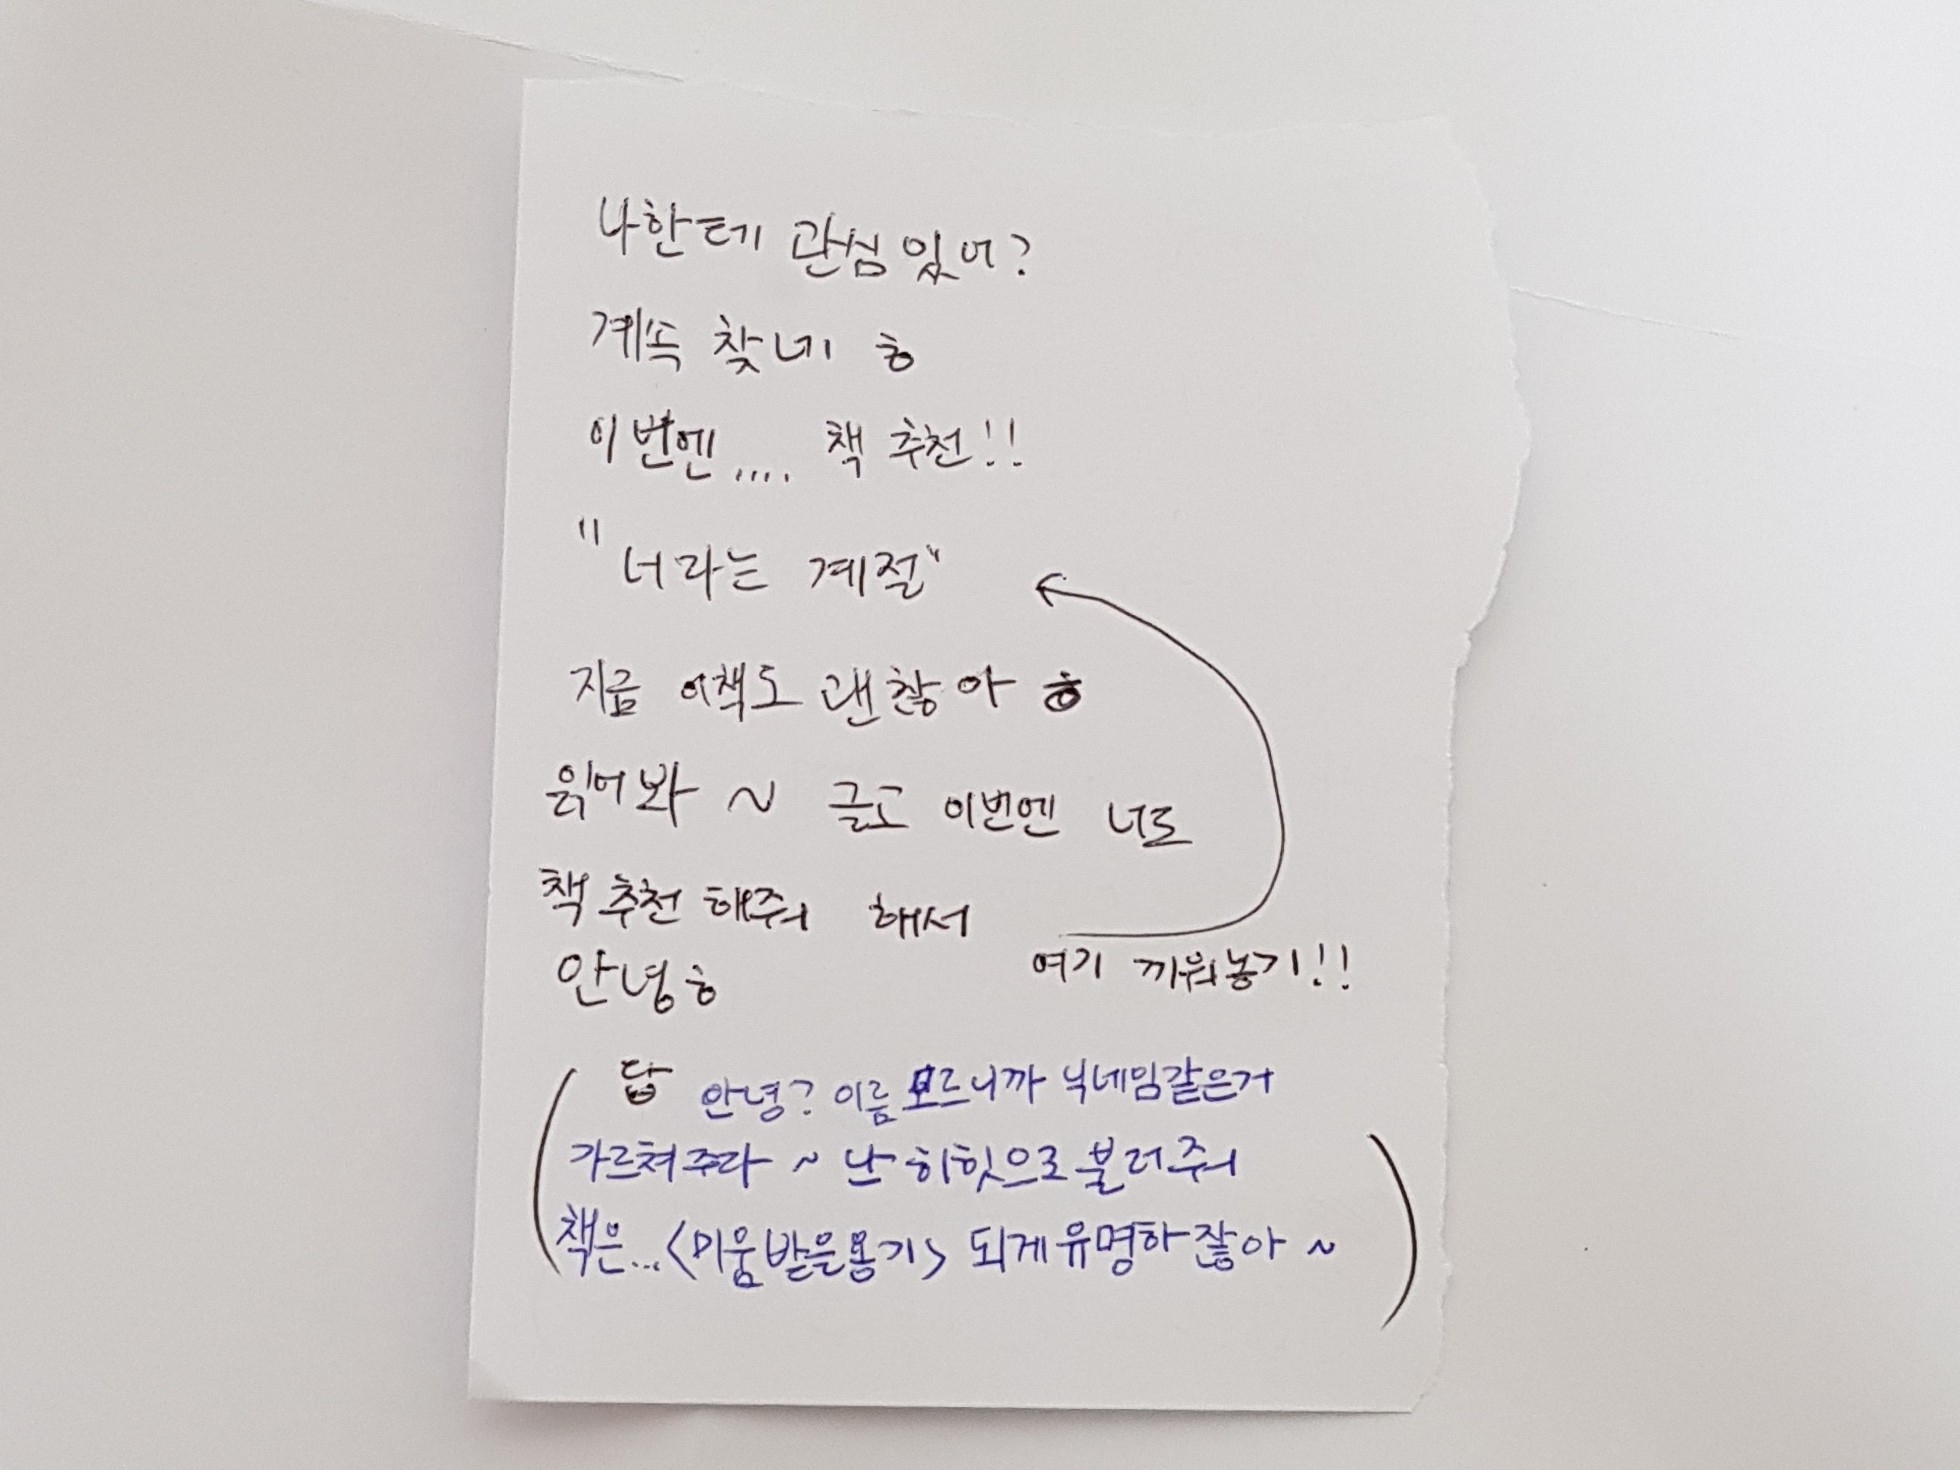 나한테 관심있어?
계속 찾네 ㅎ
이번엔.... 책 추천!!
"너라는 계절"
지금 이책도 괜찮아 ㅎ
읽어봐 ~ 글고 이번엔 너도
책 추천 해줘 해서
여기 끼워놓기!!
안녕ㅎ
답 안녕? 이름 모르니까 닉네임같은거
가르쳐주라 ~ 난 히힛으로 불러줘
책은...<미움받을용기> 되게유명하잖아 ~